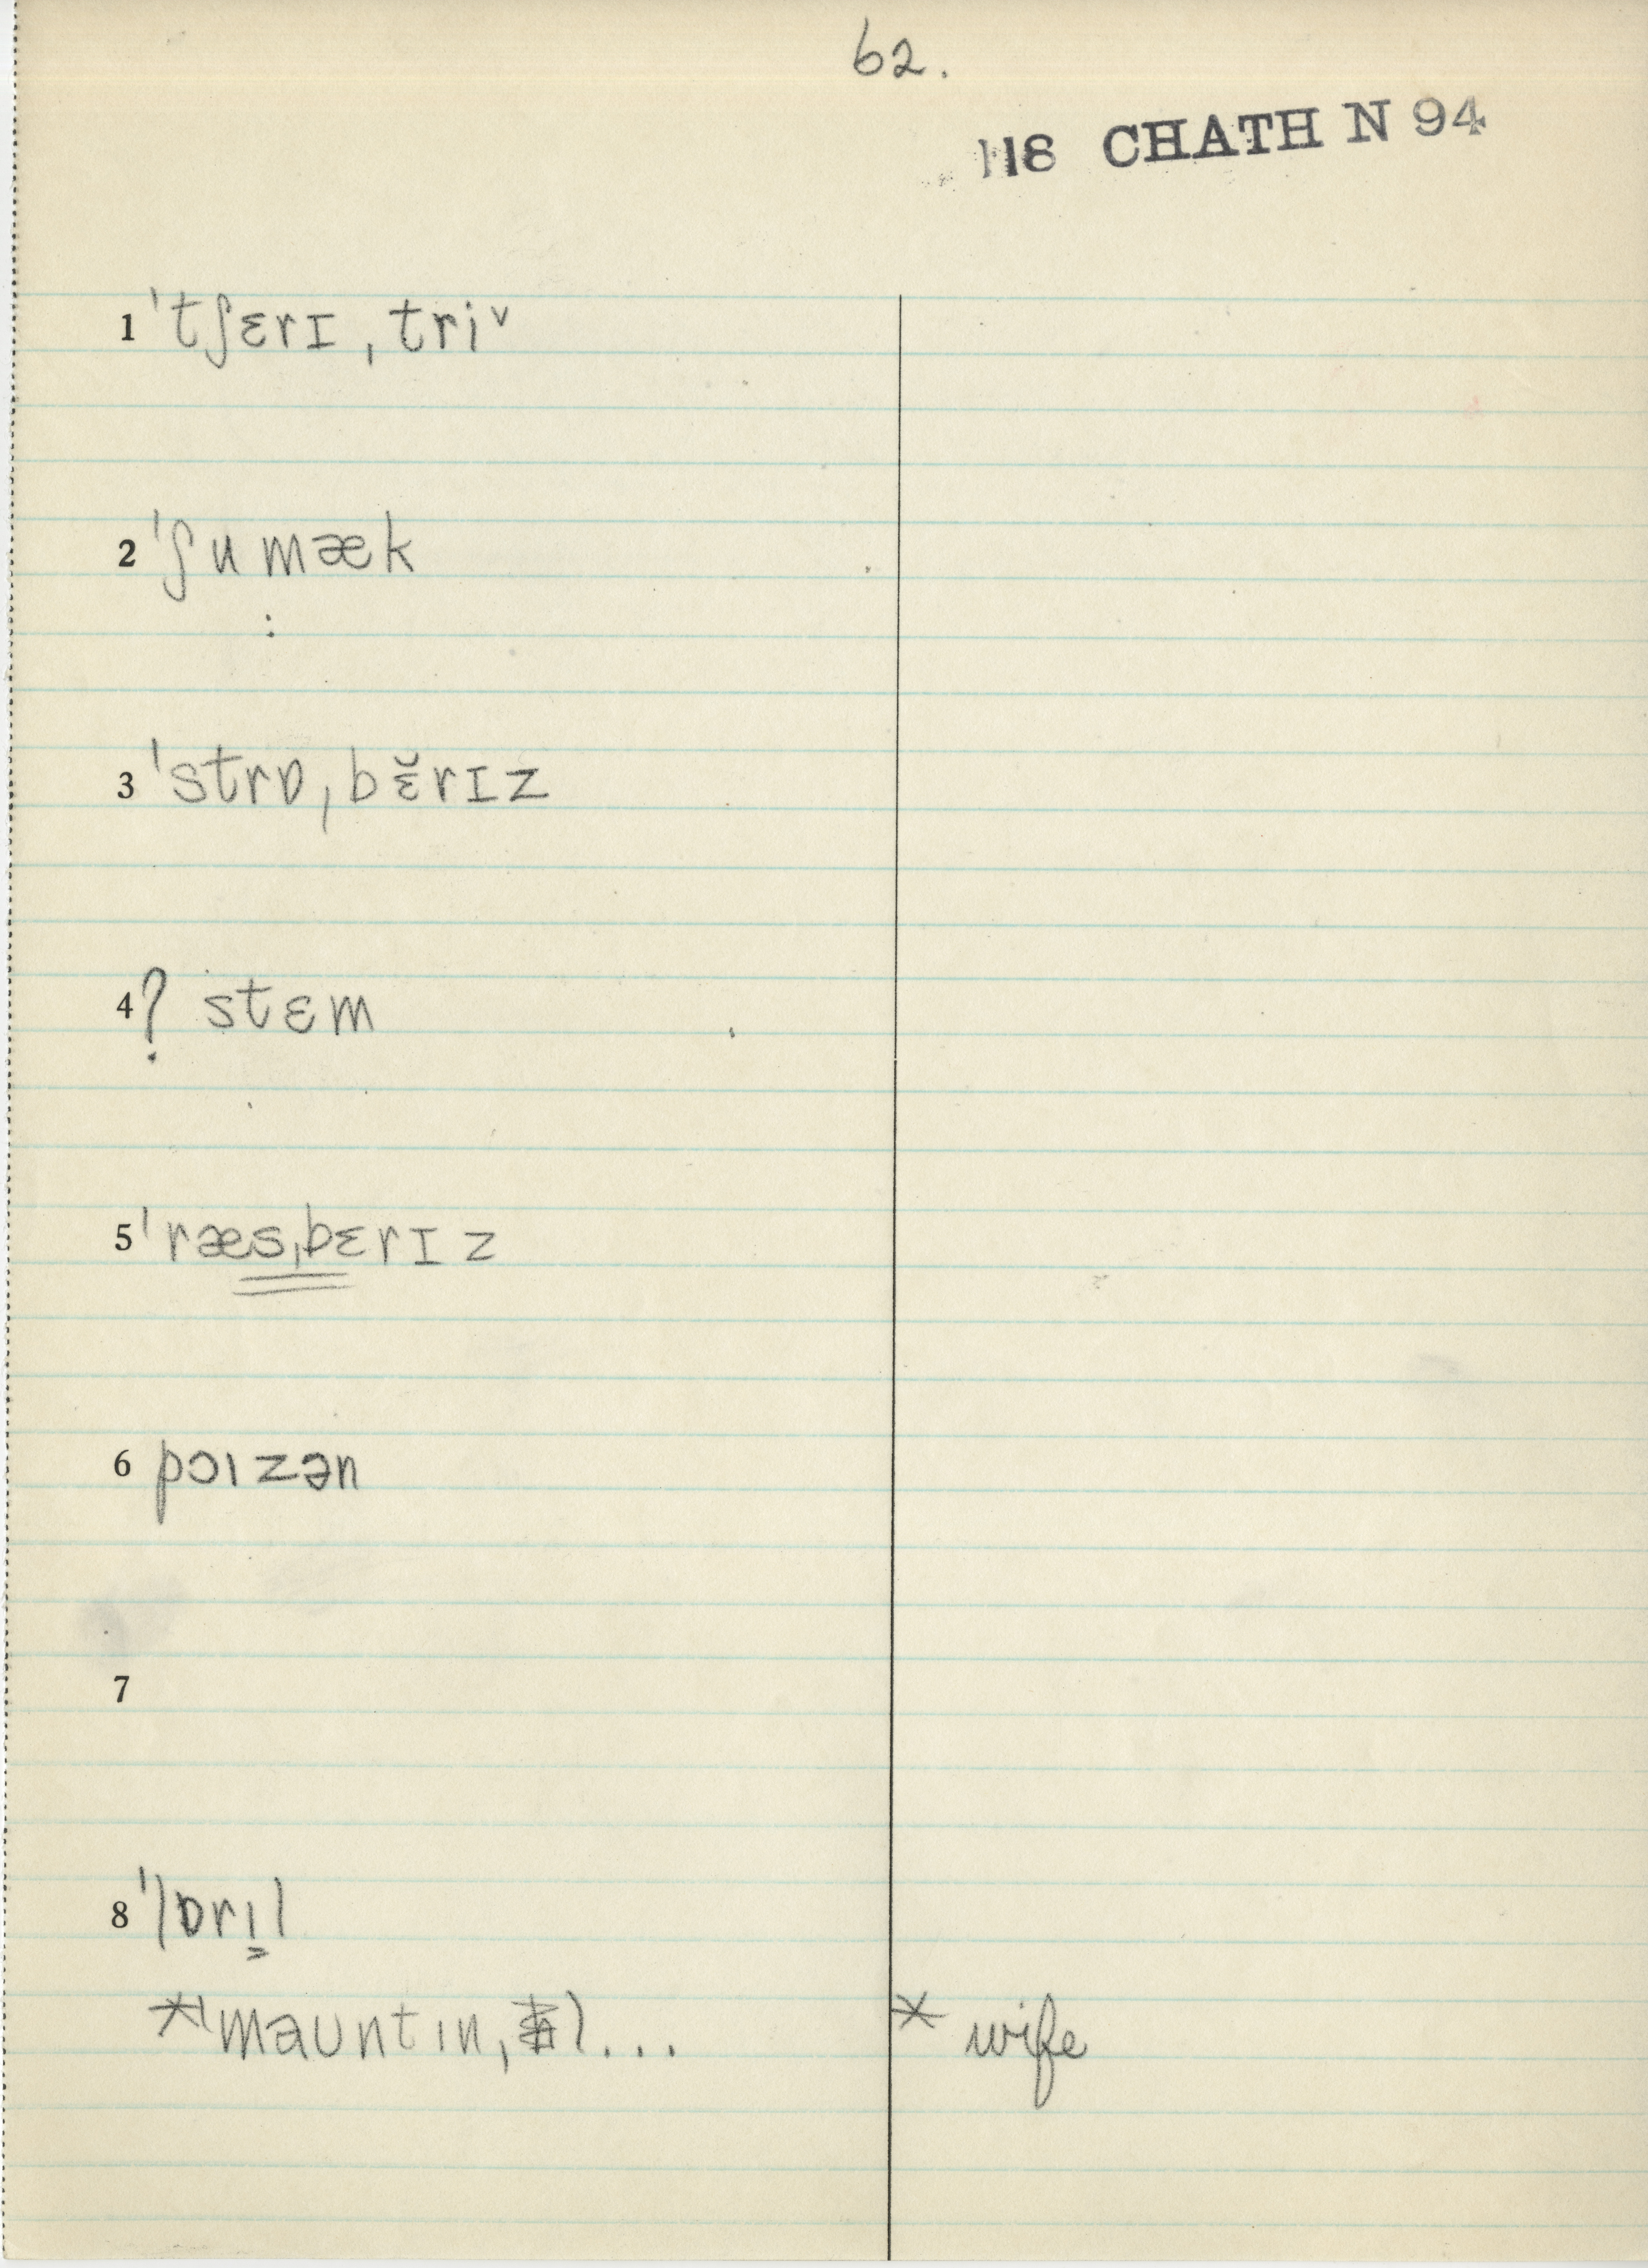 62.
118 CHATH N 94
1 ˈtʃɛrɪ ˌtriᵛ
2 ˈʃumæk
:
3 ˈstrɒˌbɛ̆rɪz
4 ? stɛm
5 ˈræsˌbɛrɪz
6 pɔızən
7
8 ˈlɒrı̱l
*ˈmaʊntın, l... * wife